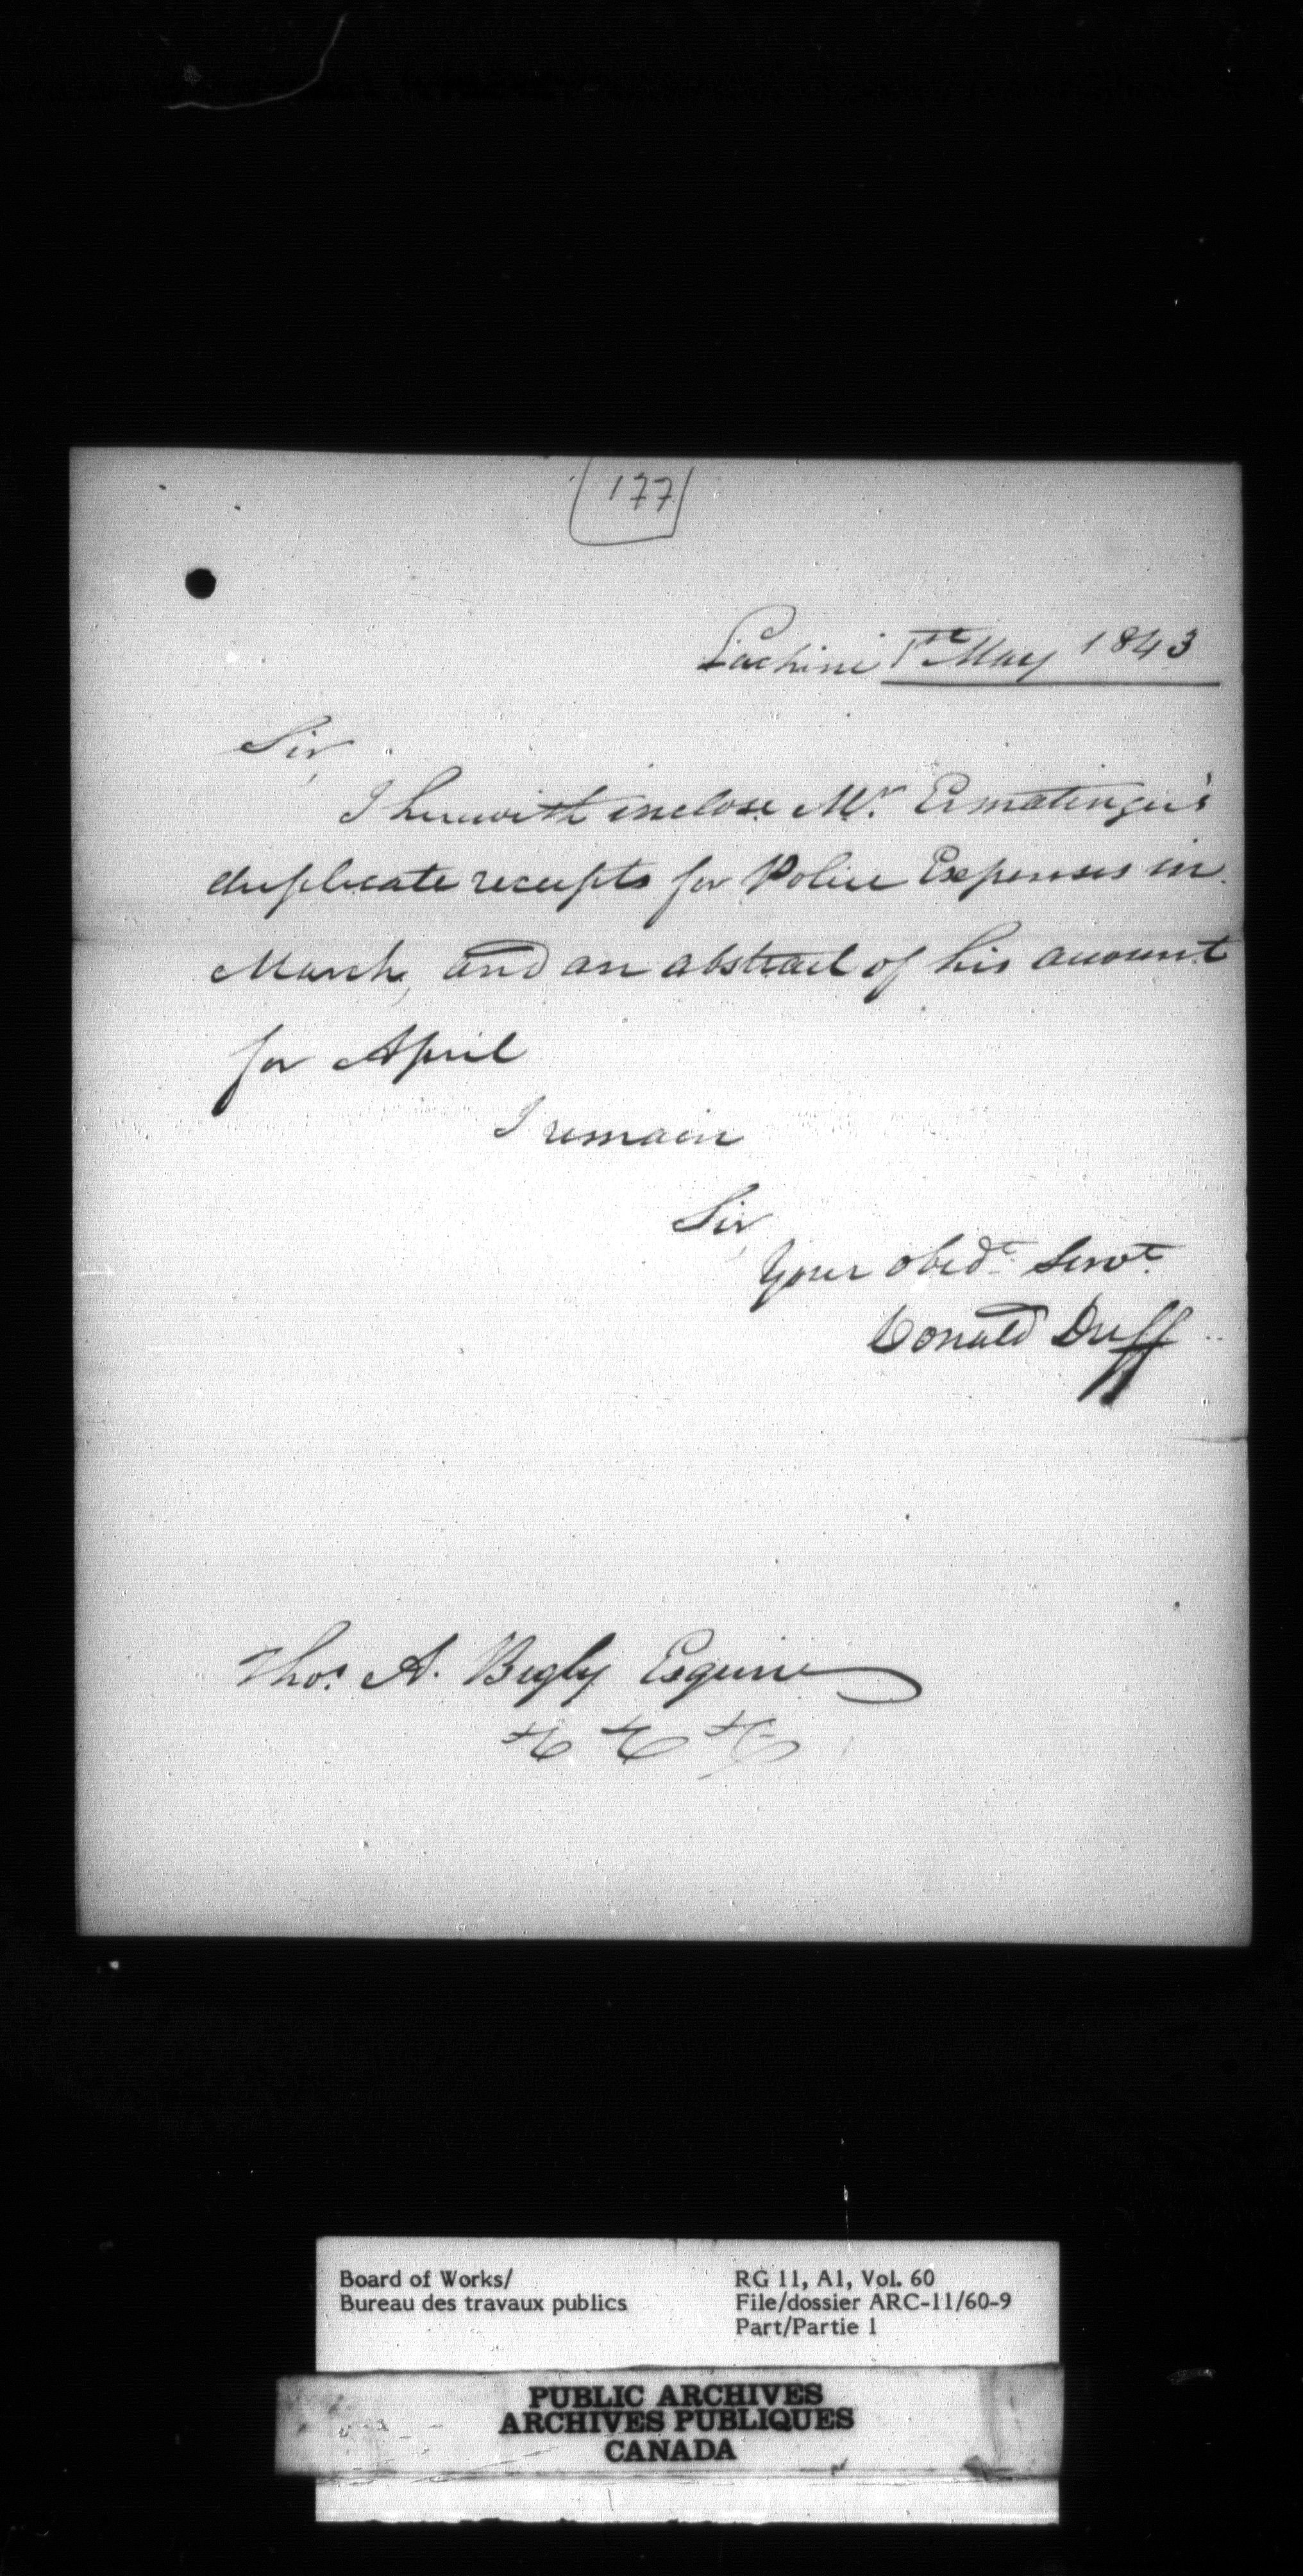 177
Lachine 1st May 1843
Sir,
I herewith inclose Mr. Ermatinger's
duplicate receipts for Police Expenses in
March, and an abstract of his account
for April
I remain
Sir,
Your obedt. Servt.
Donald Duff
Thos. A. Begly Esquire
&c &c &c
Board of Works/
Bureau des travaux publics
RG 11, A1, Vol. 60
File/dossier ARC-11/60-9
Part/Partie 1
PUBLIC ARCHIVES
ARCHIVES PUBLIQUES
CANADA